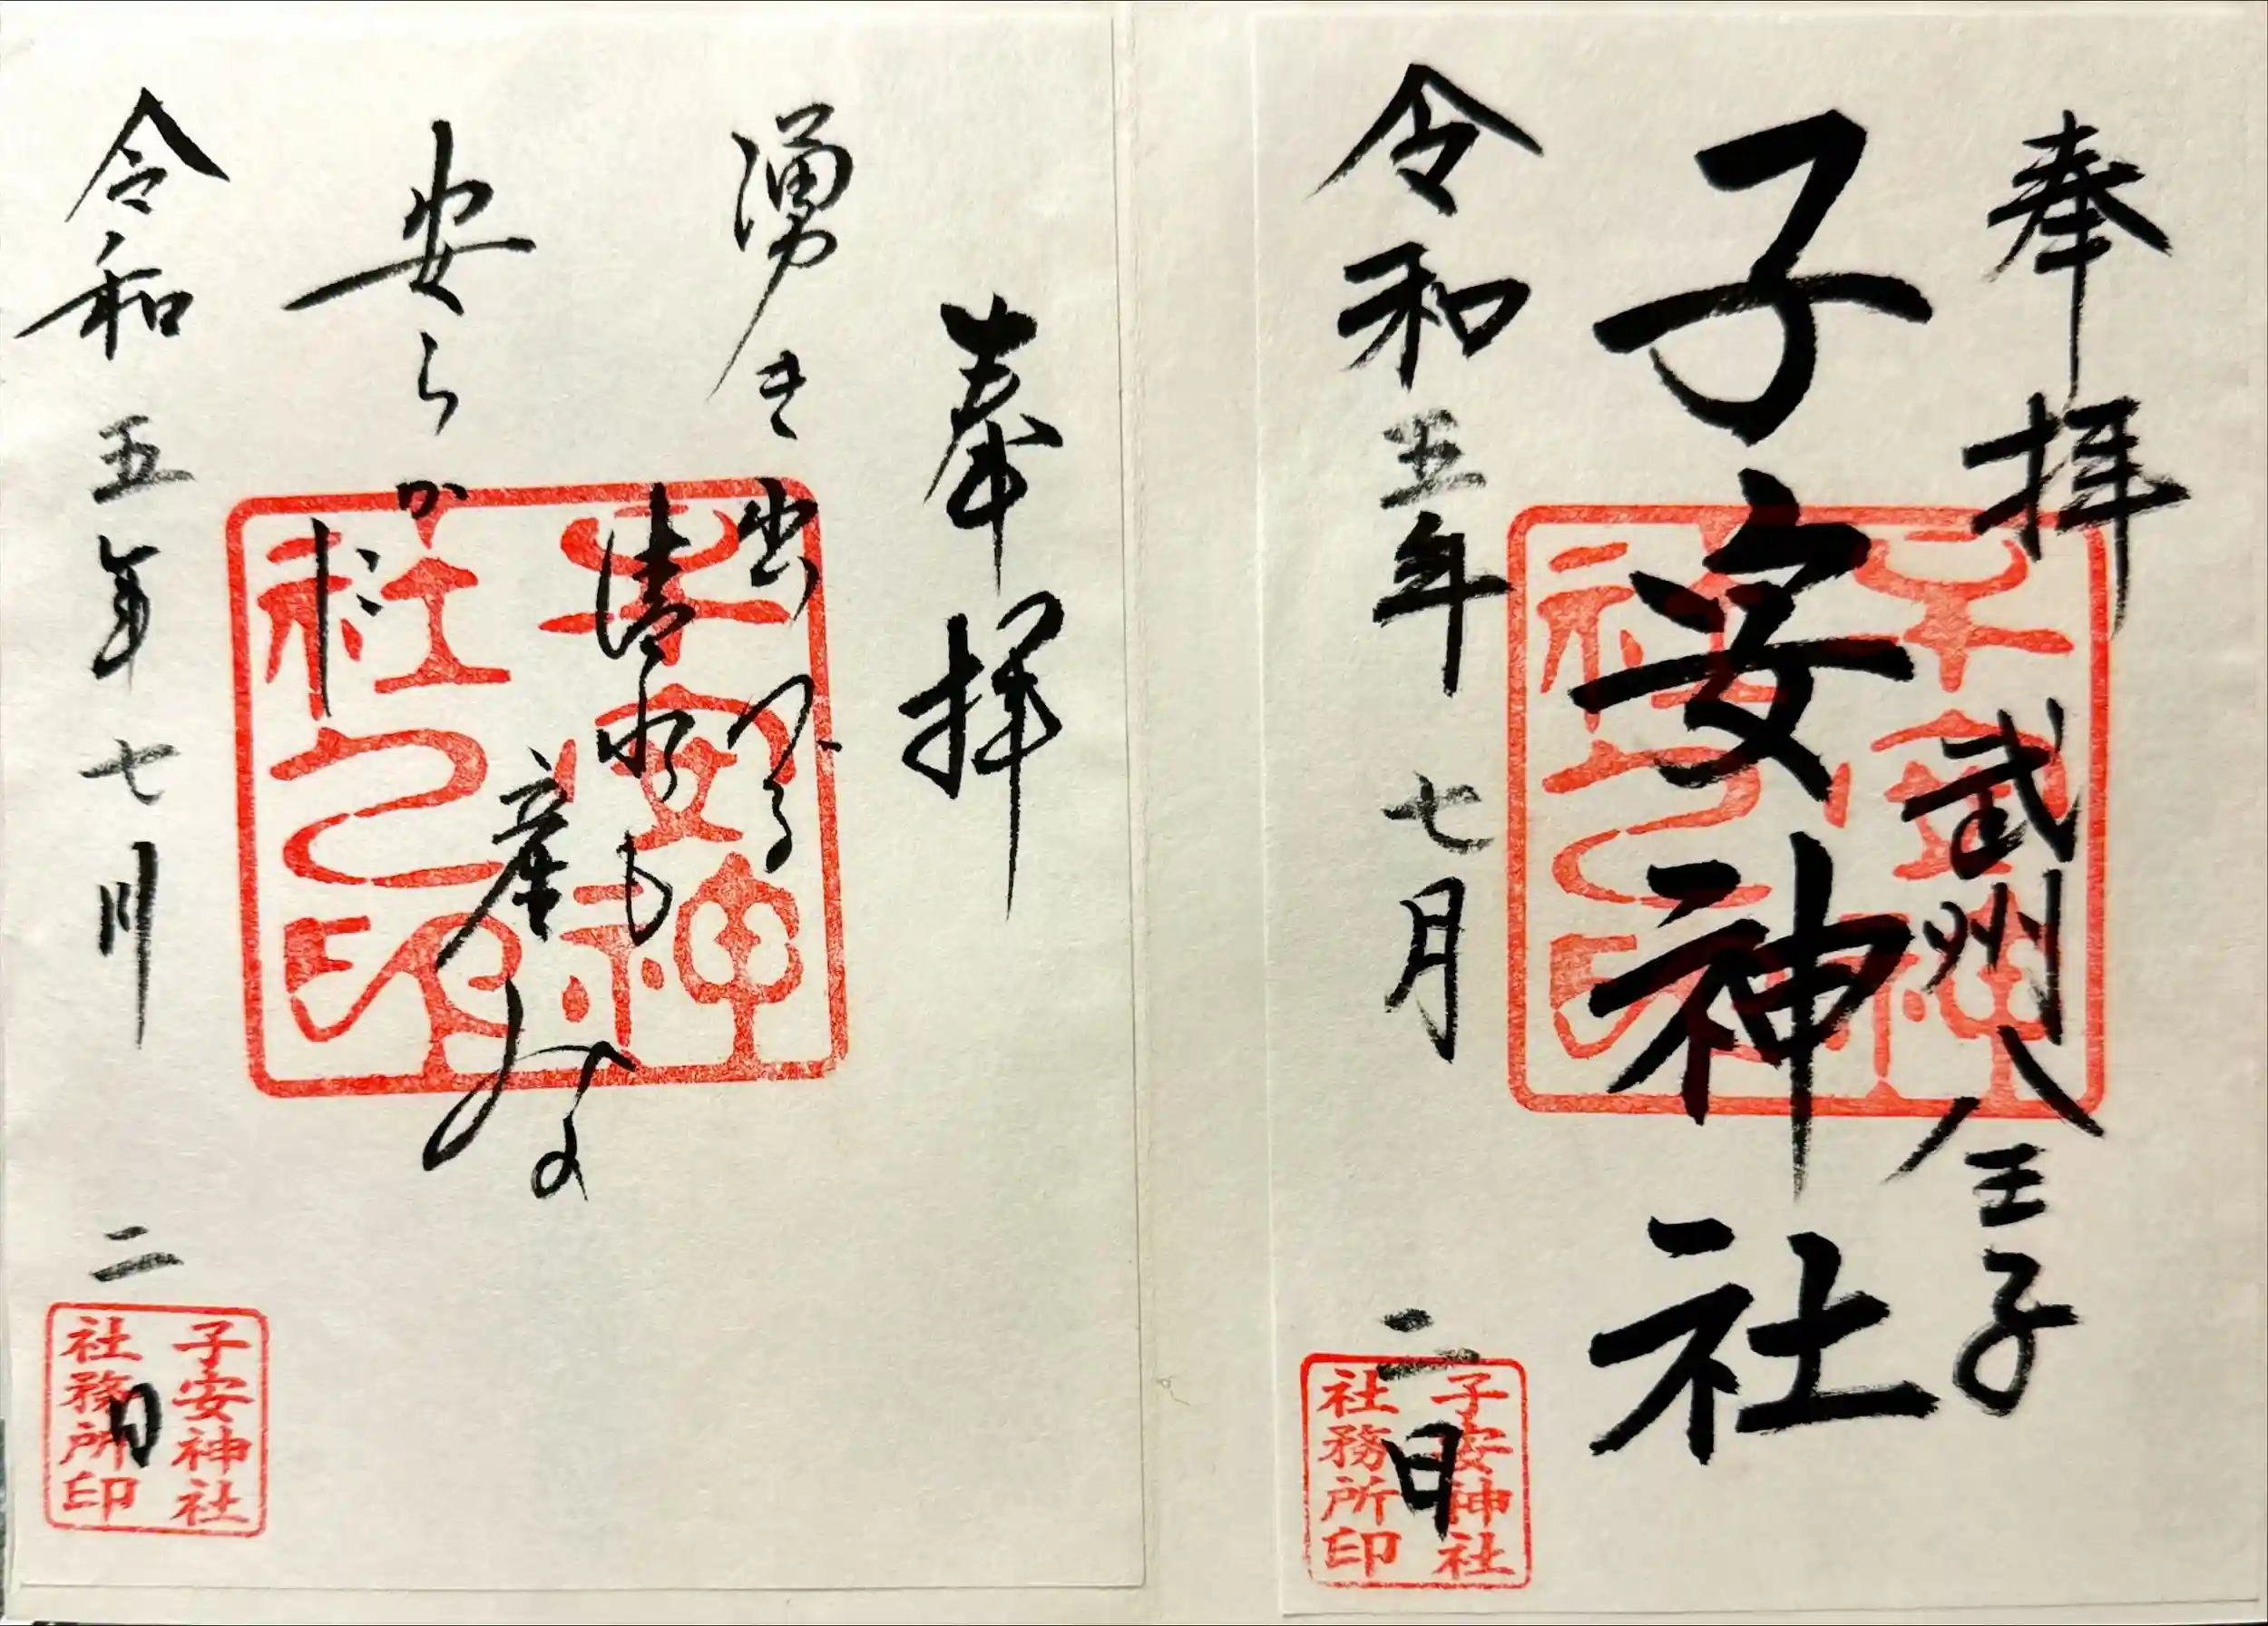 奉拝
武州八王子
子安神社
子安神
社之印
令和五年七月二日
子安神社
社務所印
奉拝
湧き出づる
清水も
産みな
安らかに
子安神
社之印
令和五年七月二日
子安神社
社務所印